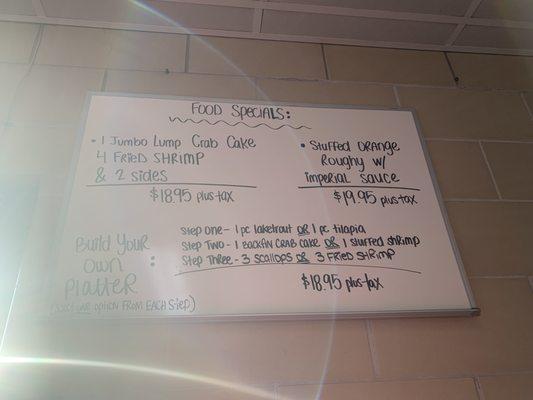 Food Specials:
• 1 Jumbo Lump Crab Cake
4 Fried Shrimp
& 2 sides
$18.95 plus tax
• Stuffed Orange
Roughy w/
imperial sauce
$19.95 plus tax
Build Your
Own :
Platter
(select one option from each step)
Step one - 1 pc laketrout OR 1 pc tilapia
Step Two - 1 Backfin crab cake OR 1 stuffed shrimp
Step Three - 3 scallops OR 3 Fried shrimp
$18.95 plus tax